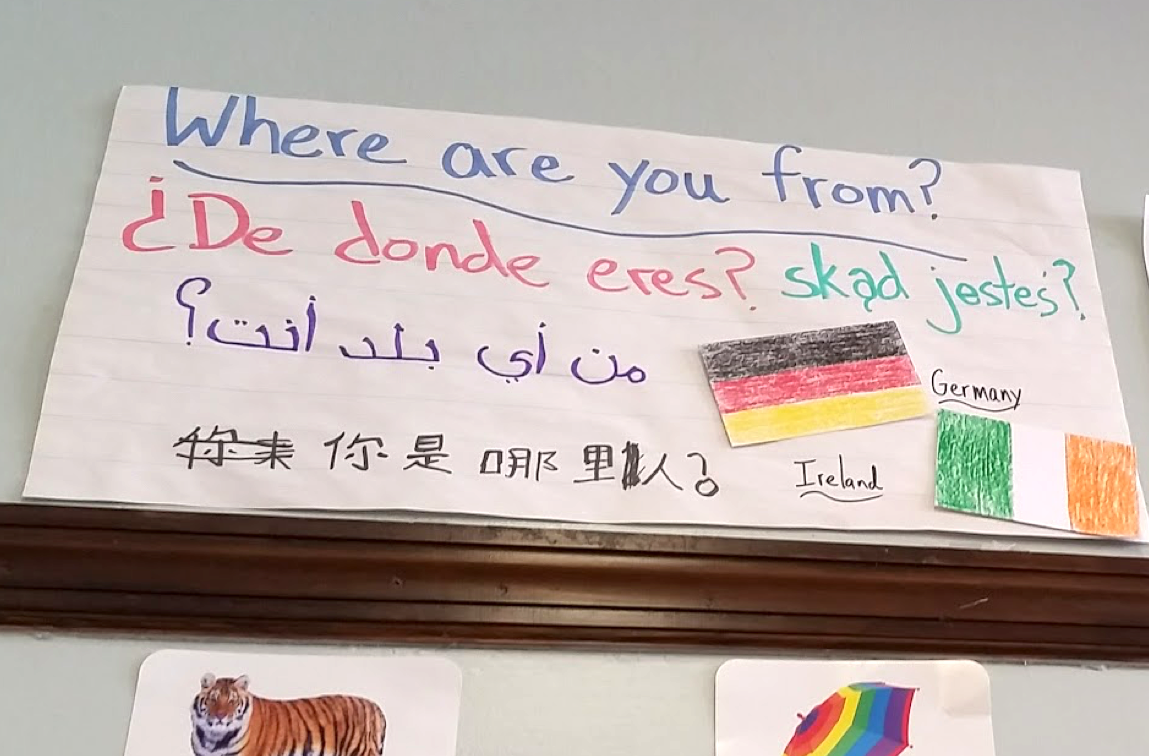 Where are you from?
¿De donde eres? skąd jesteś?
من أي بلد أنت؟
你来 你是哪里人?
Germany
Ireland